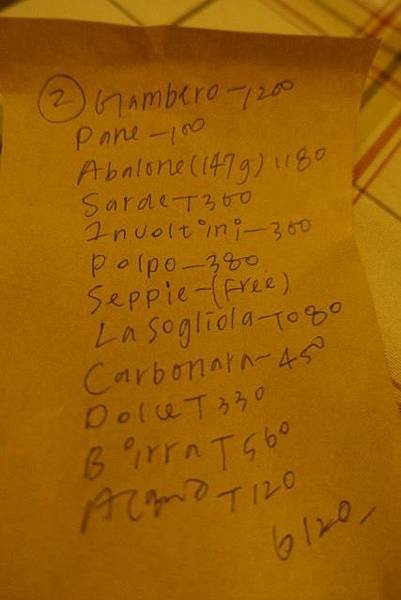 ② Gambero-1200
Pane-100
Abalone(147g) 1180
Sarde-360
Involtini-360
Polpo-380
Seppie-(Free)
La sogliola-1080
Carbonara-450
Dolce-330
Birra-560
Acqua-120
6120,-